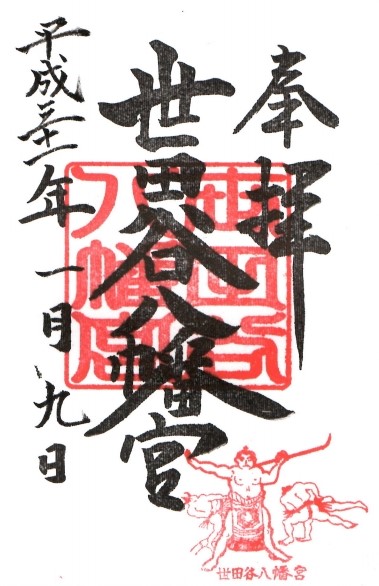 奉拝
世田谷八幡宮
平成三十一年一月九日
世田谷
八幡宮
世田谷八幡宮